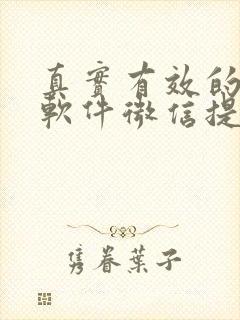 真實有效的
軟件微信提
隽眷葉子